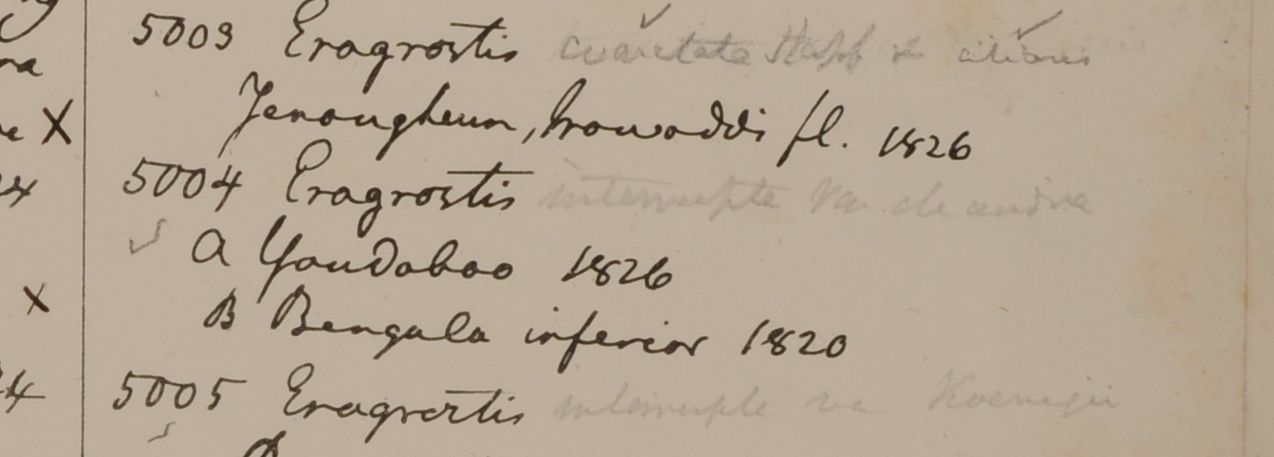 5003 Eragrostis coarctata Stapf & ciliaris
Jenangheum, Irrawaddi fl. 1826
5004 Eragrostis interrupta var
a Yandaboo 1826
B Bengala inferior 1820
5005 Eragrostis interrupta va Koenigii